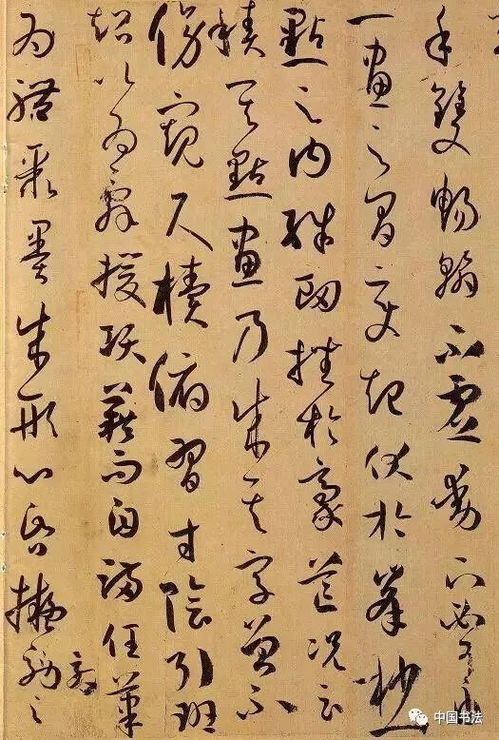 手雙暢翰不虛動下必有由
一畫之間變起伏於峯杪一
點之內殊衄挫於豪芒況云
積其點畫乃成其字曾不
傍窺尺櫝俯習寸陰引班
超以為辭援項籍而自滿任筆
為體聚墨成形心昏擬效之
中国书法